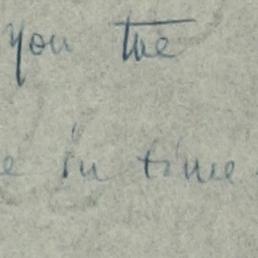 you the
e in time